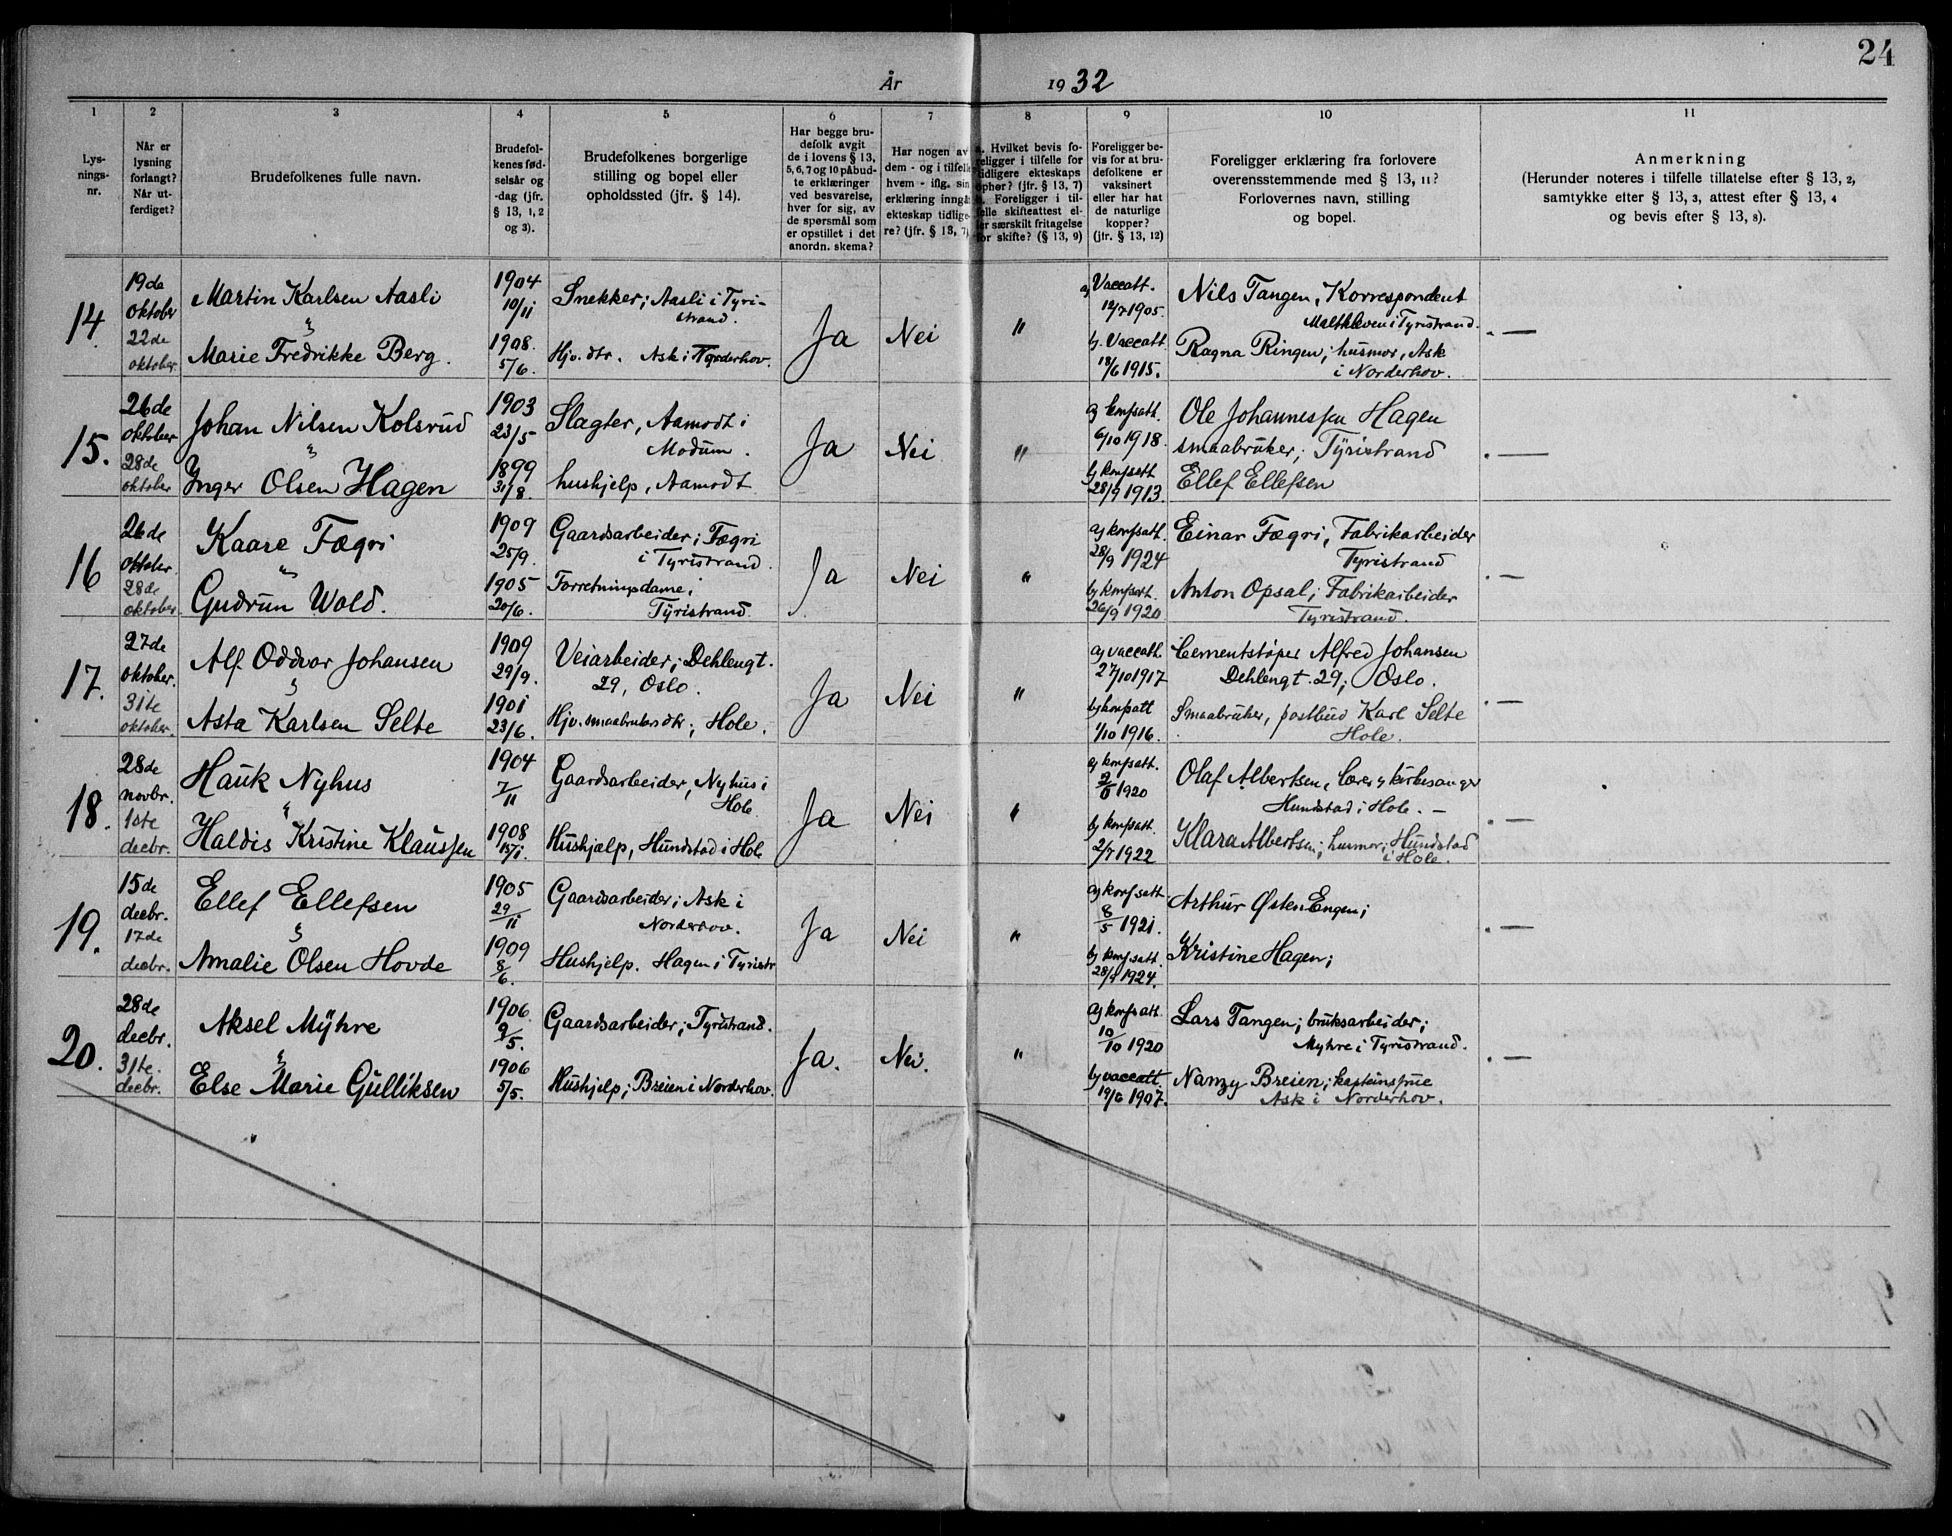 24
År 1932
1 2 3 4 5 6 7 8 9 10 11
Lys-
nings-
nr.
Når er
lysning
forlangt?
Når ut-
ferdiget?
Brudefolkenes fulle navn.
Brudefol-
kenes fød-
selsår og
-dag (jfr.
§ 13, 1, 2
og 3).
Brudefolkenes borgerlige
stilling og bopel eller
opholdssted (jfr. § 14).
Har begge bru-
defolk avgit
de i lovens § 13,
5, 6, 7 og 10 påbud-
te erklæringer
ved besvarelse,
hver for sig, av
de spørsmål som
er opstillet i det
anordn. skema?
Har nogen av
dem - og i tilfelle
hvem - iflg. sin
erklæring inngå
ekteskap tidlige-
re? (jfr. § 13, 7)
a. Hvilket bevis fo-
religger i tilfelle for
tidligere ekteskaps
ophør? (jfr. § 13, 7)
b. Foreligger i til-
felle skifteattest el-
ler særskilt fritagelse
for skifte? (§ 13, 9)
Foreligger be-
vis for at bru-
defolkene er
vaksinert
eller har hat
de naturlige
kopper?
(jfr. § 13, 12)
Foreligger erklæring fra forlovere
overensstemmende med § 13, 11?
Forlovernes navn, stilling
og bopel.
Anmerkning
(Herunder noteres i tilfelle tillatelse efter § 13, 2,
samtykke efter § 13, 3, attest efter § 13, 4
og bevis efter § 13, 8).
14.
19de
oktober
22de
oktober.
Martin Karlsen Aasli
"
Marie Fredrikke Berg.
1904
10/11
1908.
5/6.
Snekker; Aasli i Tyri-
strand.
Hjv. dtr. Ask i Norderhov.
Ja
Nei
"
a) Vaccatt.
12/7 1905.
b. Vaccatt.
18/6 1915.
Nils Tangen, Korrespondent
Maltkleven i Tyristrand.
Ragna Ringen; husmor, Ask
i Norderhov.
. —
15.
26de
oktober
28de
oktober
Johan Nilsen Kolsrud
"
Inger Olsen Hagen
1903
23/5
1899
31/8.
Slagter, Aamodt i
Modum.
hushjelp, Aamodt
Ja
Nei
"
a) konfsatt.
6/10 1918.
b) konfsatt.
28/9 1913.
Ole Johannessen Hagen
smaabruker; Tyristrand
Ellef Ellefsen
. —
16
26de
oktober.
28de
oktober.
Kaare Fægri
"
Gudrun Wold.
1909
25/9.
1905
20/6.
Gaardsarbeider; Fægri
i Tyristrand.
Forretningsdame;
Tyristrand.
Ja
Nei
"
a) konfsatt.
28/9 1924
b) konfsatt.
26/9 1920
Einar Fægri, Fabrikarbeider
Tyristrand
Anton Opsal; Fabrikarbeider
Tyristrand.
. —
17.
27de
oktober.
31te
oktober.
Alf Oddvar Johansen
"
Asta Karlsen Selte
1909
29/9.
1901
23/6.
Veiarbeider; Dehlengt.
29, Oslo.
Hjv. smaabrukersdtr; Hole.
Ja
Nei
"
a) vaccatt.
27/10 1917
b) konfsatt
1/10 1916.
Cementstøper Alfred Johansen
Dehlengt. 29; Oslo.
Smaabruker, postbud Karl Selte
Hole.
. —
18.
28de
novbr.
1ste
decbr.
Hauk Nyhus
"
Haldis Kristine Klaussen
1904
7/11
1908
15/1.
Gaardsarbeider, Nyhus i
Hole.
Hushjælp, Hundstad i Hole
Ja
Nei
"
a) konfsatt.
1920
b) konfsatt.
2/7 1922
Olaf Albertsen, lærer & kirkesanger
Hundstad i Hole. —
Klara Albertsen; husmor; Hundstad
i Hole.
. —
19.
15de
decbr.
17de
decbr.
Ellef Ellefsen
"
Amalie Olsen Hovde
1905
29/11
1909
8/6.
Gaardsarbeider; Ask i
Norderhov.
Hushjelp. Hagen i Tyristr
Ja
Nei
"
a) konfsatt.
8/5 1921.
b) konfsatt.
1924.
Arthur Østen Engen;
Kristine Hagen;
. —
20.
28de
decbr.
31te.
decbr.
Aksel Myhre
"
Else Marie Gulliksen
1906.
9/5.
1906
5/5.
Gaardsarbeider; Tyristrand.
Hushjelp; Breien i Norderhov.
Ja.
Nei.
"
a) konfsatt.
10/10 1920
b) vaccatt.
19/6 1907.
Lars Tangen; bruksarbeider;
Myhre i Tyristrand.
Nanzy Breien; kapteinsfrue
Ask i Norderhov.
. —